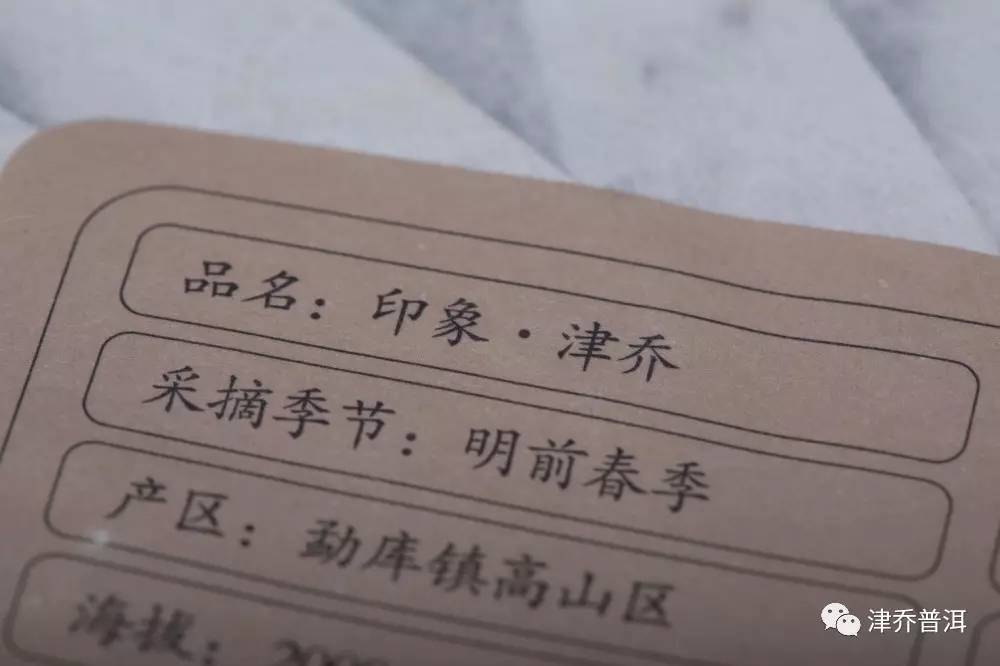 品名：印象·津乔
采摘季节：明前春季
产区：勐库镇高山区
海拔：
津乔普洱